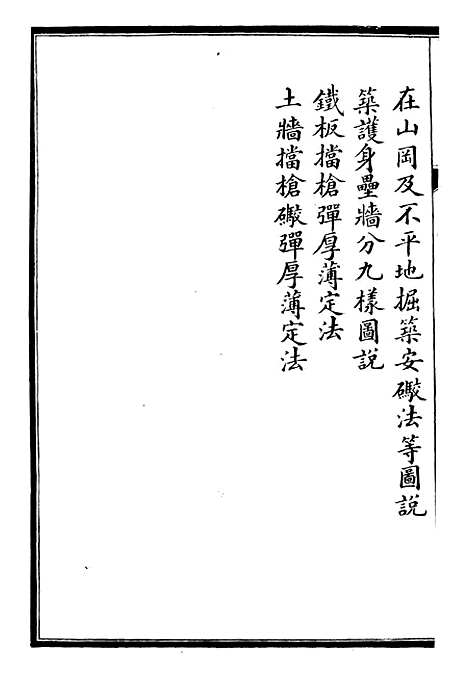 在山岡及不平地掘築安礮法等圖說
築護身壘牆分九樣圖說
鐵板擋槍彈厚薄定法
土牆擋槍礮彈厚薄定法